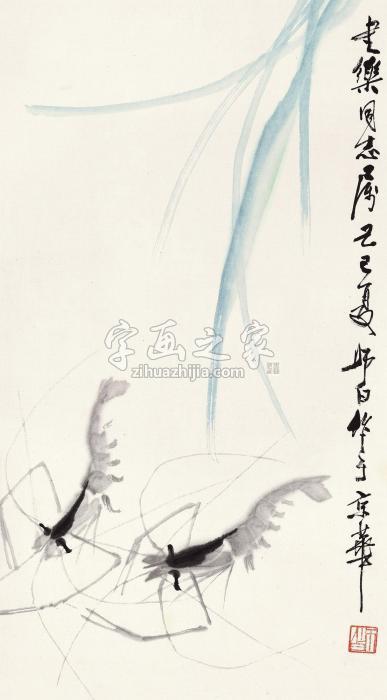 樂同志属己巳夏师白作于京華
字画之家
zihuazhijia.com